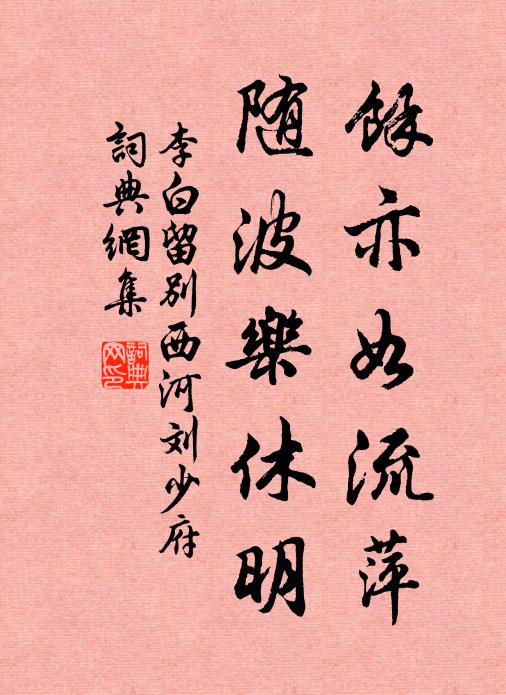 餘亦如流萍
随波樂休明
李白留别西河刘少府
詞典網集
詞典网印